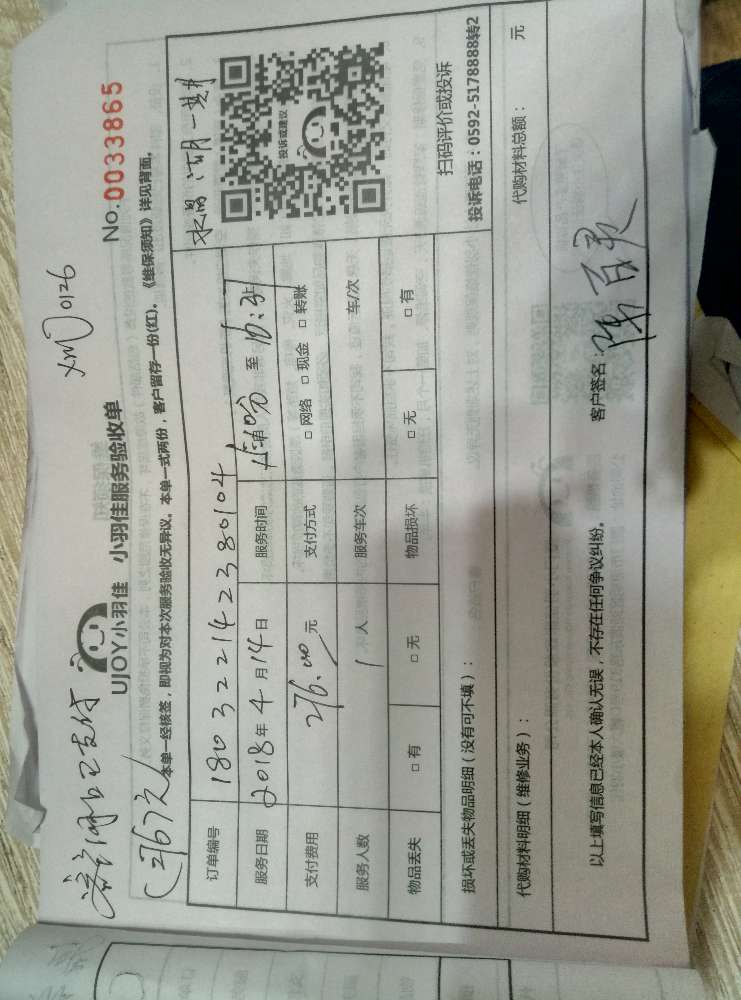 XM 0126
(276元)
UJOY小羽佳 小羽佳服务验收单
No.0033865
本单一经核签，即视为对本次服务验收无异议。本单一式两份，客户留存一份(红)。《维保须知》详见背面。
订单编号 180322142380104
水晶湖
投诉或建议
服务日期 2018年4月14日 服务时间 至
支付费用 276.00元 支付方式 □ 网络 □ 现金 □ 转账
服务人数 1人 服务车次 车/次
物品丢失 □ 有 □ 无 物品损坏 □ 无 □ 有
扫码评价或投诉
投诉电话：0592-5178888转2
损坏或丢失物品明细（没有可不填）：
代购材料明细（维修业务）： 代购材料总额： 元
以上填写信息已经本人确认无误，不存在任何争议纠纷。 客户签名：